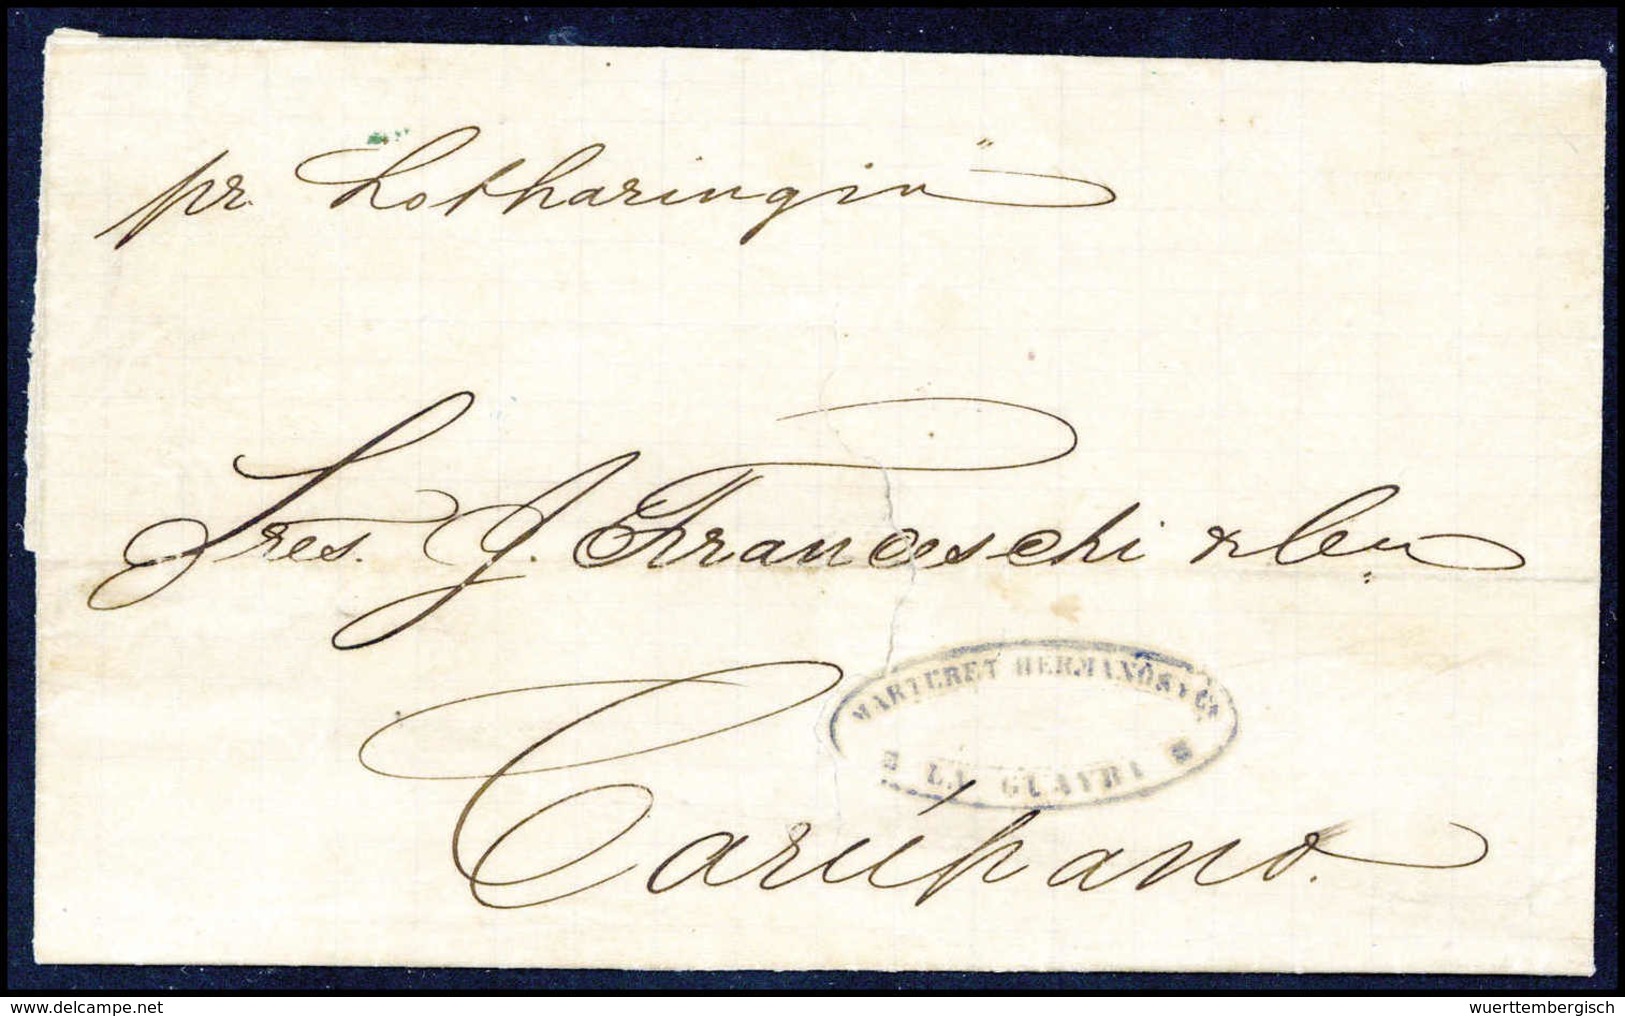 pr. Lotharingia"
Sres. J. Franceschi & Ca
MARTERET HERMANOS Y Ca
LA GUAYRA
Carúpano.
© the-philatelist.com
wuerttembergisch